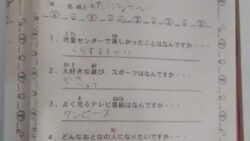 年 名前
1. 児童センターで楽しかったことはなんですか・・・
くりすますかい
2. 大好きな遊び、スポーツはなんですか・・・
3. よく見るテレビ番組はなんですか・・・
ワンピース
4. どんなおとなの人になりたいですか・・・